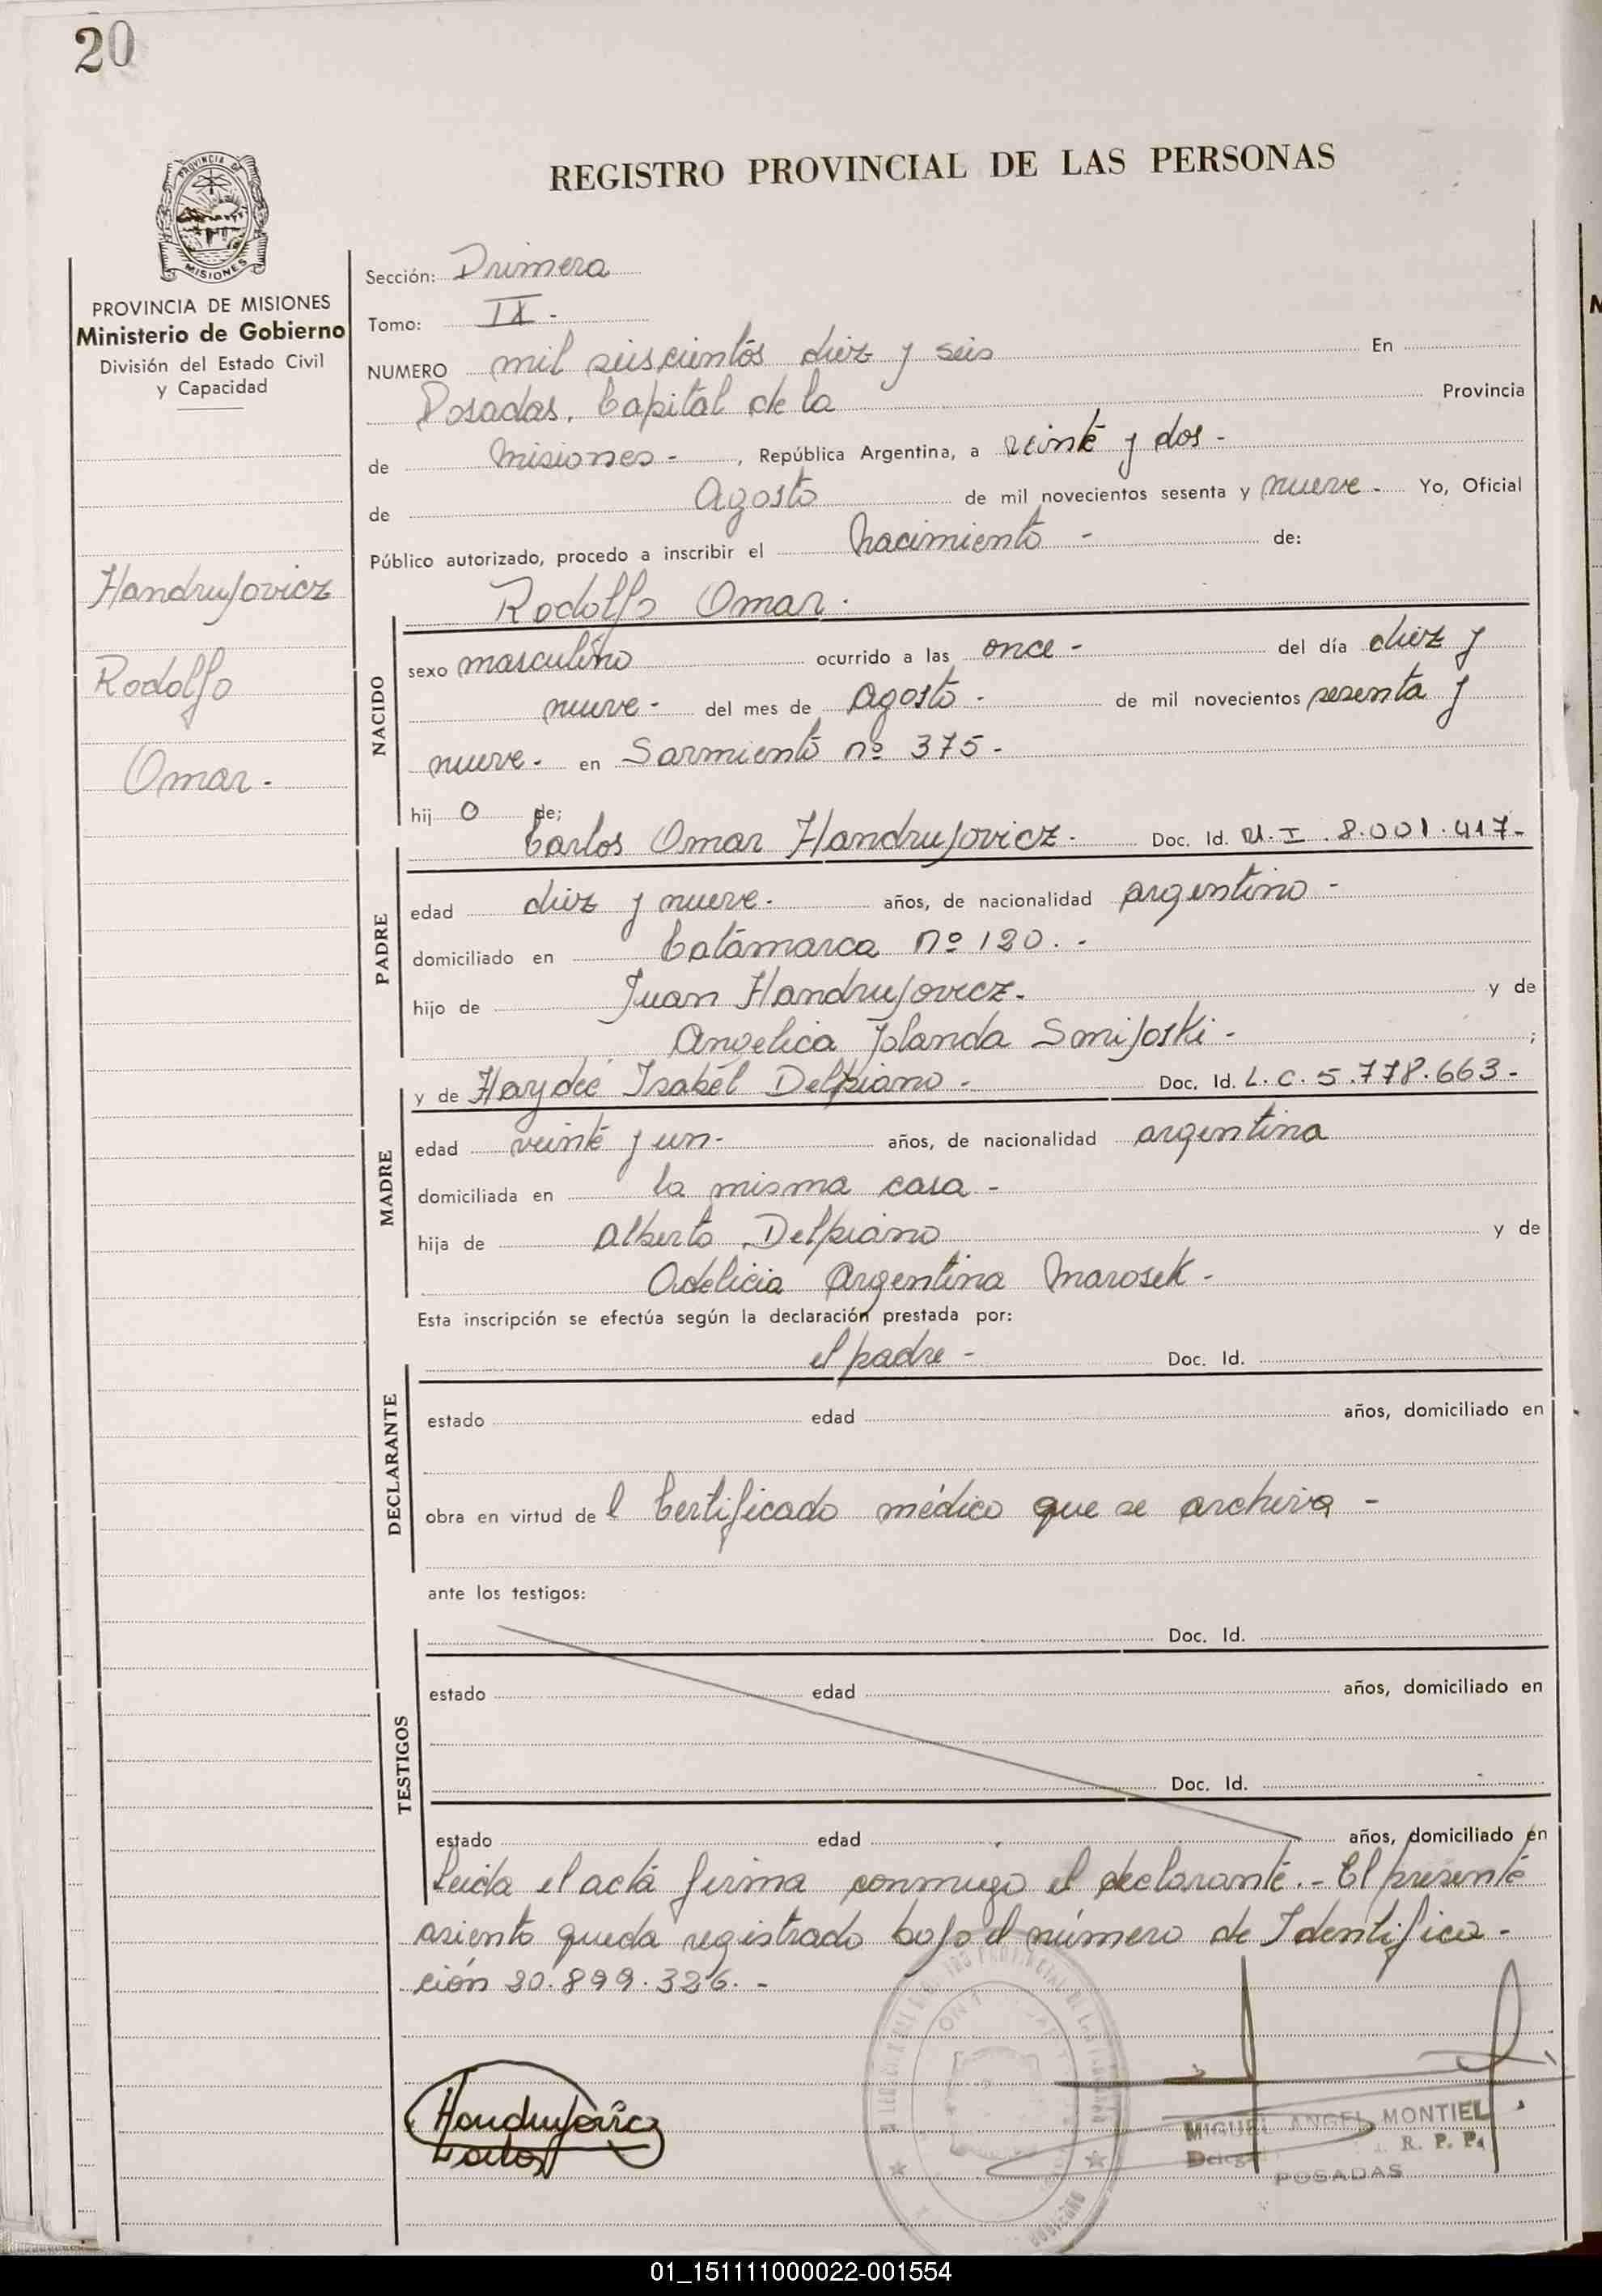 20
REGISTRO PROVINCIAL DE LAS PERSONAS
PROVINCIA DE MISIONES
PROVINCIA DE MISIONES
Ministerio de Gobierno
División del Estado Civil
y Capacidad
Handrujovicz
Rodolfo
Omar.-
Sección: Primera
Tomo: IX.-
NUMERO mil seiscientos diez y seis En
Posadas, Capital de la Provincia
de Misiones-, República Argentina, a veinte y dos-
de Agosto de mil novecientos sesenta y nueve- Yo, Oficial
Público autorizado, procedo a inscribir el nacimiento - de:
Rodolfo Omar.
NACIDO
sexo masculino ocurrido a las once- del día diez y
nueve- del mes de Agosto- de mil novecientos sesenta y
nueve- en Sarmiento nº 375-
hij o de;
Carlos Omar Handrujovicz- Doc. Id. M.I. 8.001.417-
PADRE
edad diez y nueve- años, de nacionalidad argentino-
domiciliado en Catamarca nº 120.-
hijo de Juan Handrujovicz- y de
Angelica Jolanda Smijoski-;
MADRE
y de Haydeé Isabel Delpiano- Doc. Id. L.C. 5.778.663-
edad veinte y un- años, de nacionalidad argentina
domiciliada en la misma casa-
hija de Alberto Delpiano y de
Odelicia Argentina Marosek-
Esta inscripción se efectúa según la declaración prestada por:
el padre- Doc. Id.
DECLARANTE
estado edad años, domiciliado en
obra en virtud de l Certificado médico que se archiva-
ante los testigos:
TESTIGOS
Doc. Id.
estado edad años, domiciliado en
Doc. Id.
estado edad años, domiciliado en
Leida el acta firma conmigo el declarante.- El presente
asiento queda registrado bajo el número de Identifica-
ción 20.899.326.-
Handrujovicz
Carlos
MIGUEL ANGEL MONTIEL
R. P. P.
POSADAS
01_151111000022-001554